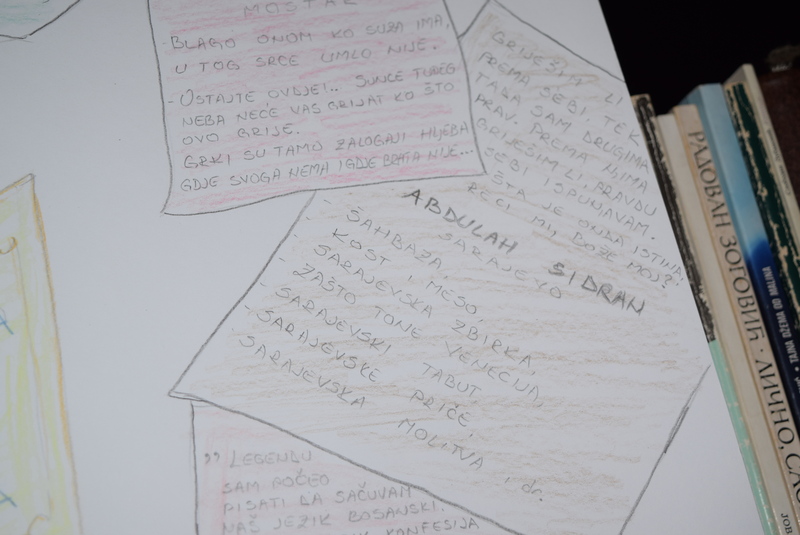 MOSTAR
- BLAGO ONOM KO SUZA IMA,
U TOG SRCE UMLO NIJE.
- OSTAJTE OVDJE!.. SUNCE TUĐEG
NEBA NEĆE VAS GRIJAT KO ŠTO
OVO GRIJE.
GRKI SU TAMO ZALOGAJI HLJEBA
GDJE SVOGA NEMA I GDJE BRATA NIJE...
GRIJEŠIM LI
PREMA SEBI, TEK
TADA SAM DRUGIMA
PRAV. PREMA NJIMA
GRIJEŠIM LI, PRAVDU
SEBI ISPUNJAVAM.
ŠTA JE ONDA ISTINA,
RECI MI, BOŽE MOJ?
ABDULAH SIDRAN
SARAJEVO
- ŠAHBAZA,
- KOST I MESO,
- SARAJEVSKA ZBIRKA,
- ZAŠTO TONE VENECIJA,
- SARAJEVSKI TABUT,
- SARAJEVSKE PRIČE,
- SARAJEVSKA MOLITVA, i dr.
" LEGENDU
SAM POČEO
PISATI DA SAČUVAM
NAŠ JEZIK BOSANSKI.
KONFESIJA
РАДОВАН ЗОГОВИЋ · ЛИЧНО, СА
TAJNA DŽEMA OD MALINA
ЈОВ